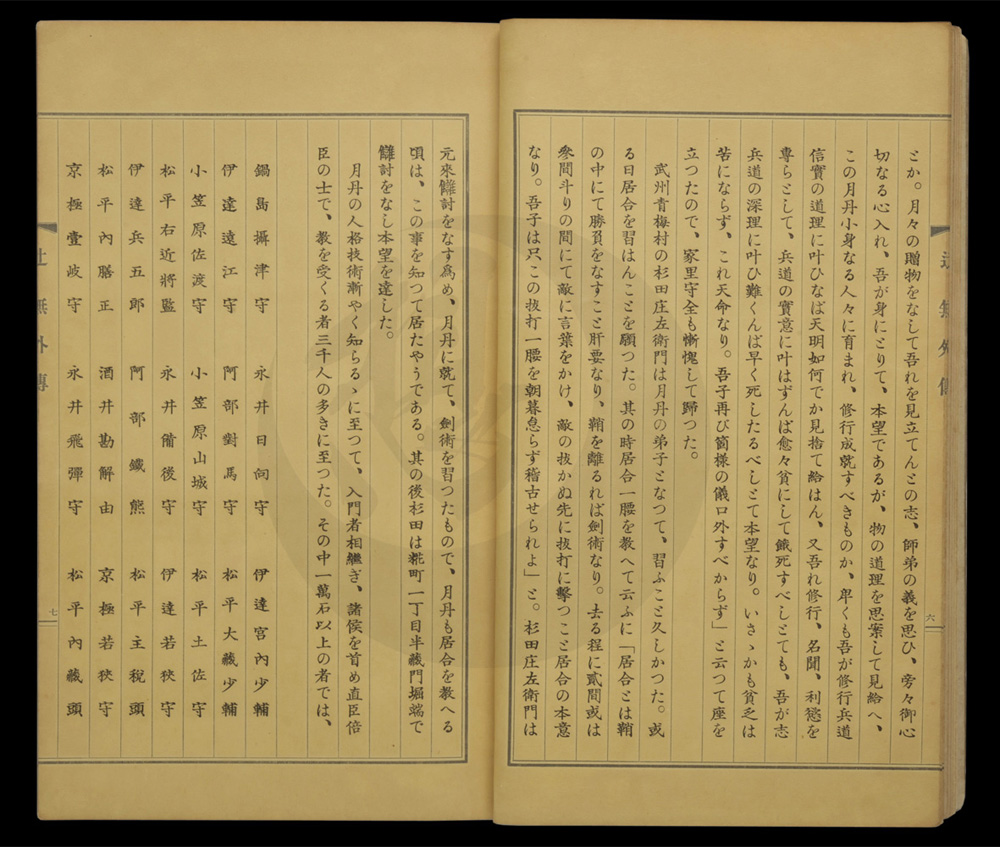 とか。月々の贈物をなして吾れを見立てんとの志、師弟の義を思ひ、旁々御心
切なる心入れ、吾が身にとりて、本望であるが、物の道理を思案して見給へ、
この月丹小身なる人々に育まれ、修行成就すべきものか、卑くも吾が修行兵道
信實の道理に叶ひなば天明如何でか見捨て給はん、又吾れ修行、名聞、利慾を
專らとして、兵道の實意に叶はずんば愈々貧にして餓死すべしとても、吾が志
兵道の深理に叶ひ難くんば早く死したるべしとて本望なり。いさゝかも貧乏は
苦にならず、これ天命なり。吾子再び箇樣の儀口外すべからず」と云つて座を
立つたので、家里守全も慚愧して歸つた。
武州青梅村の杉田庄左衛門は月丹の弟子となつて、習ふこと久しかつた。或
る日居合を習はんことを願つた。其の時居合一腰を教へて云ふに「居合とは鞘
の中にて勝負をなすこと肝要なり、鞘を離るれば劍術なり。去る程に貳間或は
參間斗りの間にて敵に言葉をかけ、敵の拔かぬ先に拔打に擊つこと居合の本意
なり。吾子は只この拔打一腰を朝暮怠らず稽古せられよ」と。杉田庄左衛門は
六
元來讎討をなす爲め、月丹に就て、劍術を習つたもので、月丹も居合を教へる
頃は、この事を知つて居たやうである。其の後杉田は糀町一丁目半藏門堀端で
讎討をなし本望を達した。
月丹の人格技術漸やく知らるゝに至つて、入門者相繼ぎ、諸侯を首め直臣倍
臣の士で、教を受くる者三千人の多きに至つた。その中一萬石以上の者では、
鍋島攝津守　永井日向守　伊達宮內少輔
伊達遠江守　阿部對馬守　松平大藏少輔
小笠原佐渡守　小笠原山城守　松平土佐守
松平右近將監　永井備後守　伊達若狹守
伊達兵五郎　阿部鐵熊　松平主稅頭
松平內膳正　酒井勘解由　京極若狹守
京極壹岐守　永井飛彈守　松平內藏頭
七